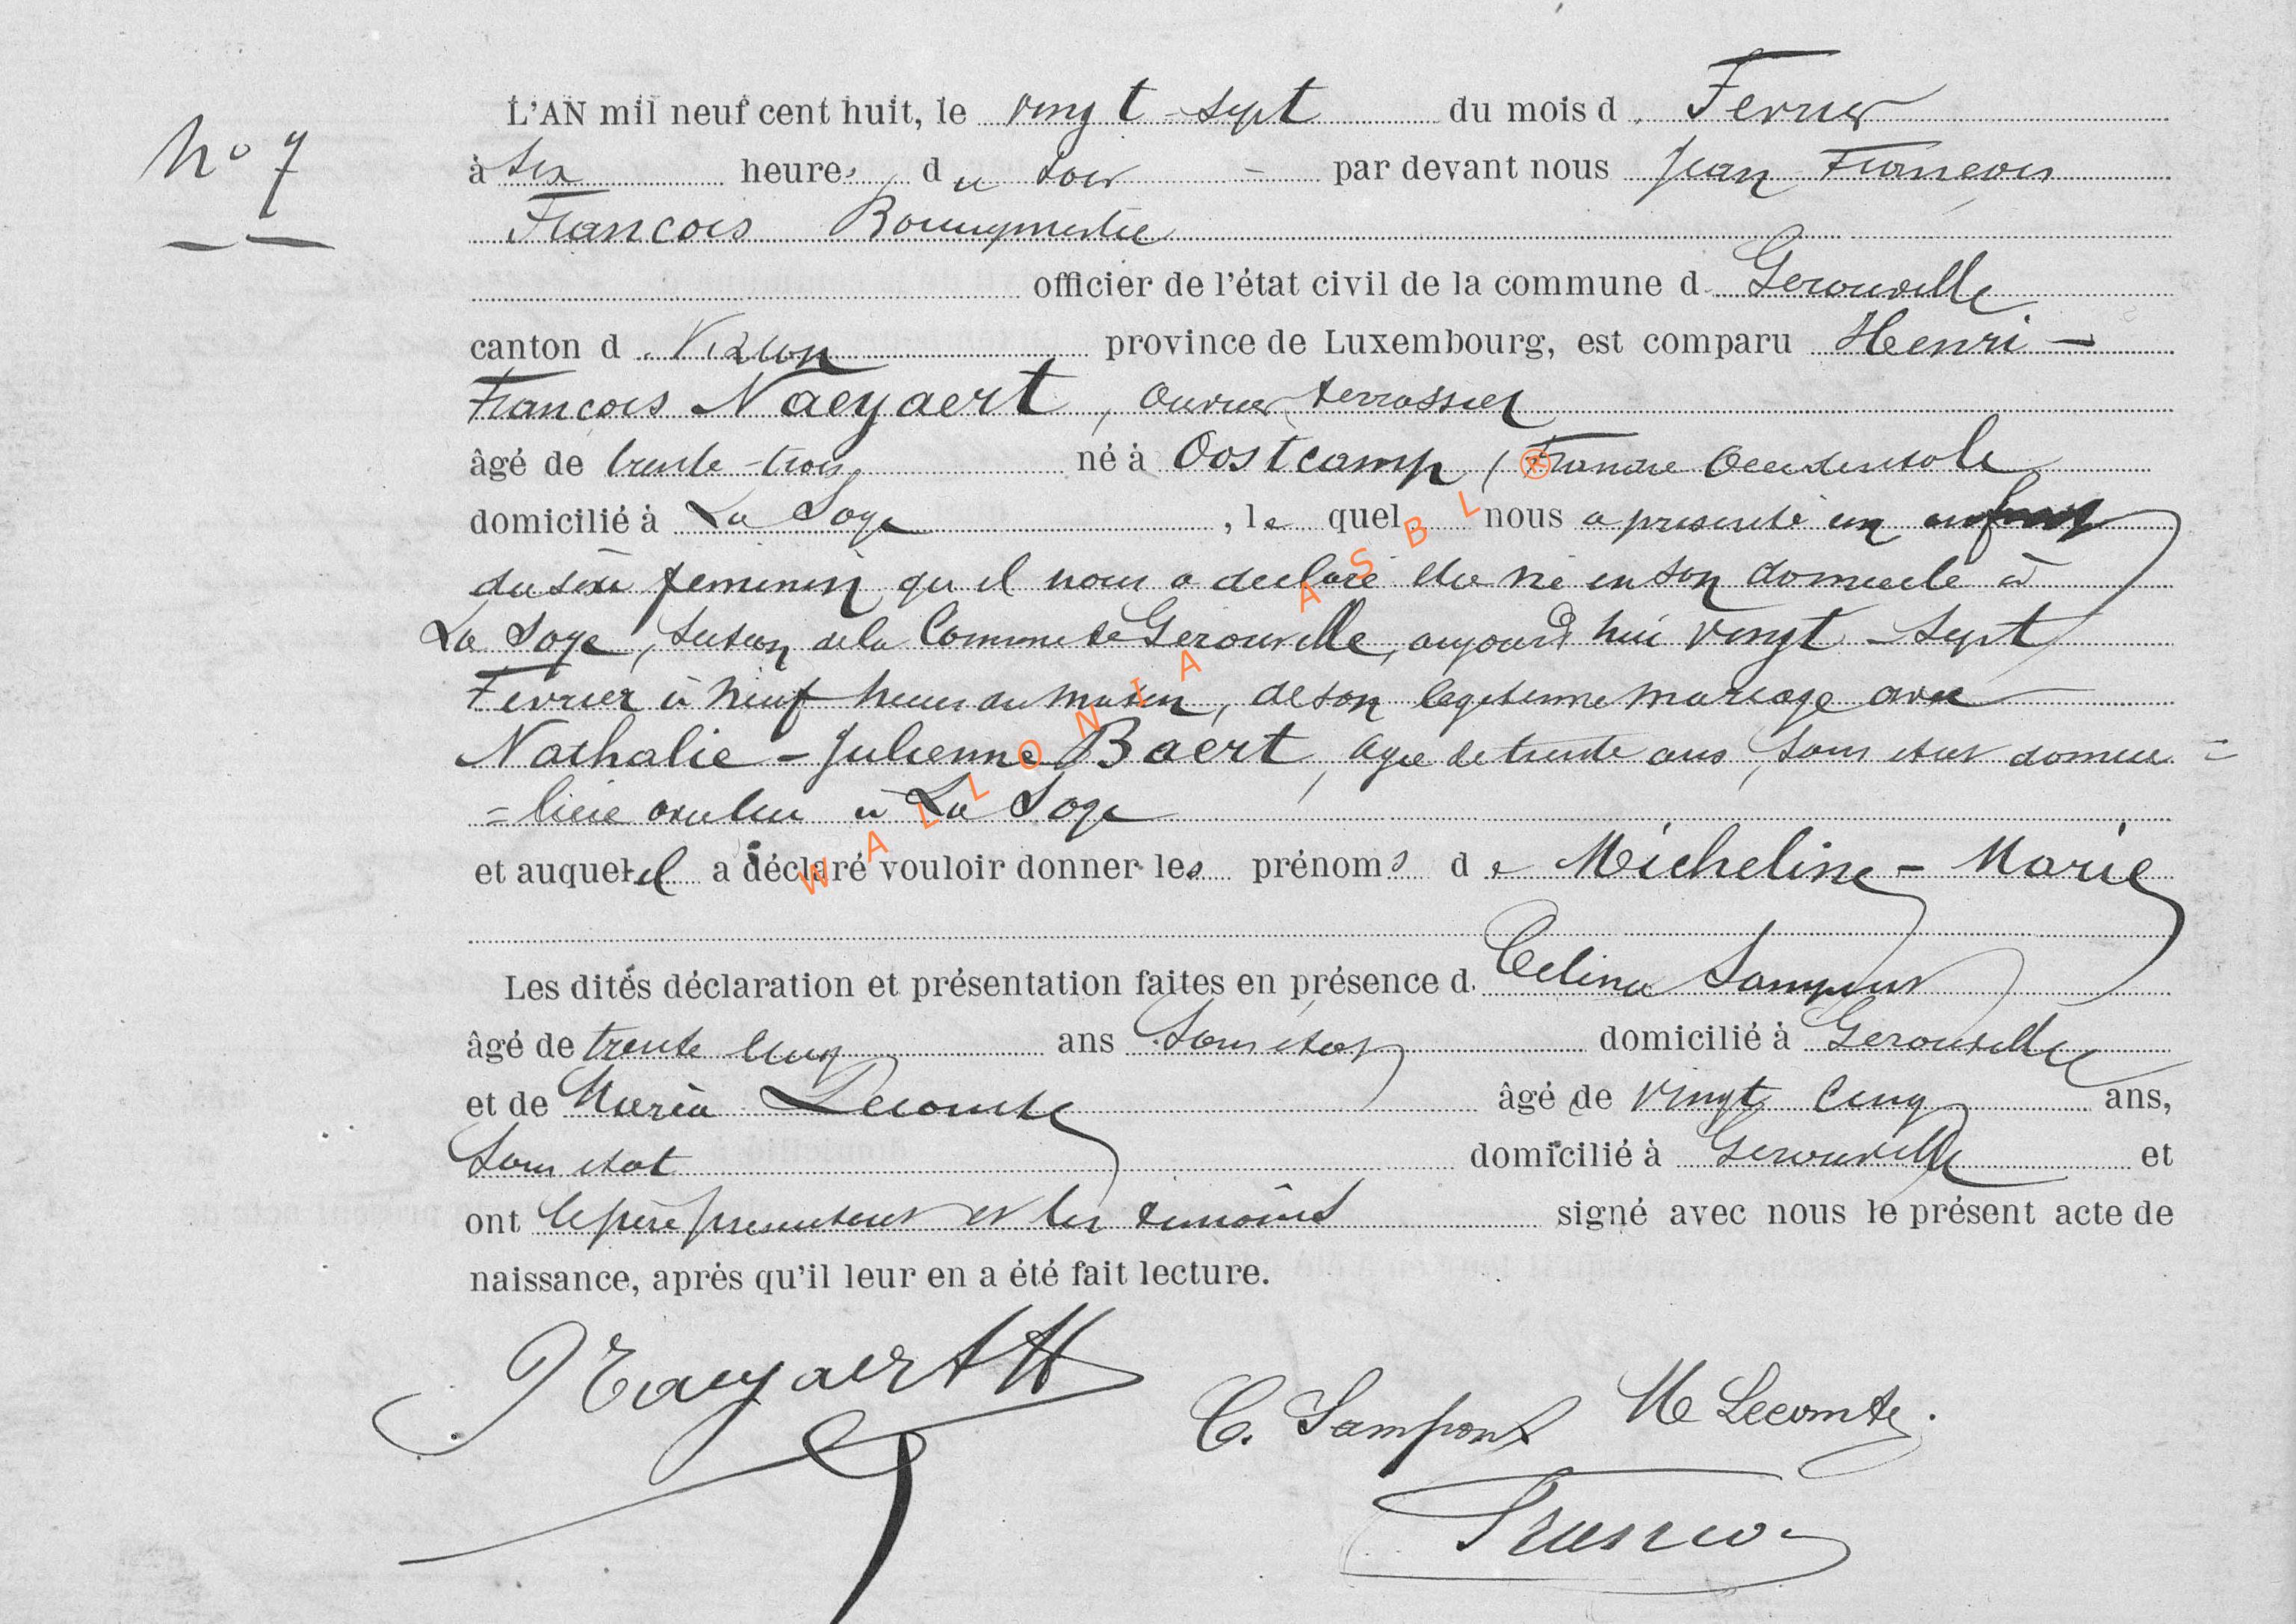 N° 7
L'AN mil neuf cent huit, le vingt-sept du mois d Fevrier
à six heures du soir - par devant nous Jean François
François Bourgmestre
officier de l'état civil de la commune d Gerouville
canton d Virton province de Luxembourg, est comparu Henri-
François Naeyaert, ouvrier terrassier
âgé de trente-trois né à Oostcamp (Flandre Occidentale
domicilié à La Soye, lequel nous a présenté un enfant
du sexe feminin qu'il nous a déclaré être né en son domicile à
La Soye, section de la Commune de Gerouville, aujourd'hui vingt-sept
Fevrier à neuf heures du matin, de son legitime mariage avec
Nathalie-Julienne Baert, agée de trente ans, sans etat domici=
=liée avec lui à La Soye
et auquel il a déclaré vouloir donner les prénoms de Micheline-Marie
Les dités déclaration et présentation faites en présence d. Celina Sampont
âgé de trente cinq ans Sans etat domicilié à Gerouville
et de Maria Lecomte âgé de vingt cinq ans,
Sans etat domicilié à Gerouville et
ont le père présentant et les témoins signé avec nous le présent acte de
naissance, après qu'il leur en a été fait lecture.
Naeyaert H
C. Sampont M Lecomte.
WALLONIA ASBL ®